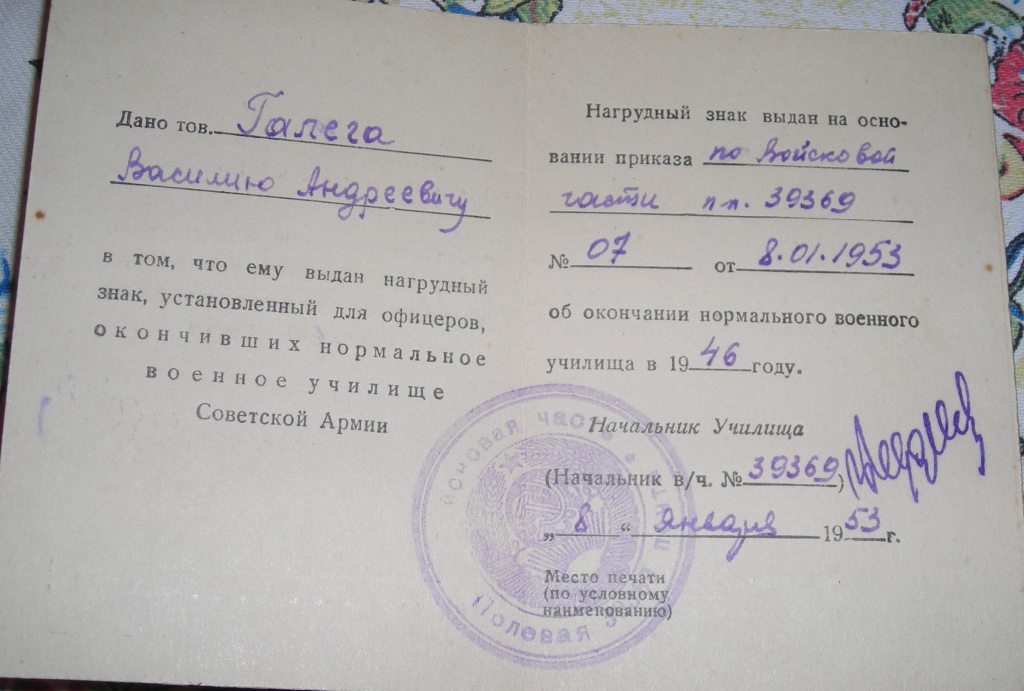 Дано тов. Галега
Василию Андреевичу
в том, что ему выдан нагрудный
знак, установленный для офицеров,
окончивших нормальное
военное училище
Советской Армии
Нагрудный знак выдан на осно-
вании приказа по Войсковой
части п-п. 39369
№ 07 от 8.01.1953
об окончании нормального военного
училища в 1946 году.
Начальник Училища
(Начальник в/ч. № 39369)
„ 8 “ января 1953 г.
Место печати
(по условному
наименованию)
йсковая часть
Полевая